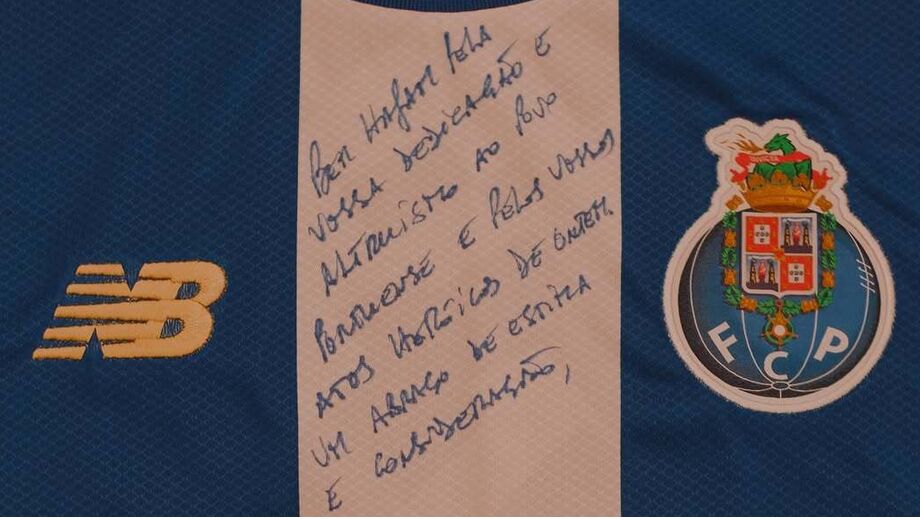 BEM HAJAM PELA
VOSSA DEDICAÇÃO E
ALTRUISMO AO POVO
PORTUENSE E PELOS VOSSOS
ATOS HERÓICOS DE ONTEM.
UM ABRAÇO DE ESTIMA
E CONSIDERAÇÃO,
NB
INVICTA
F C P